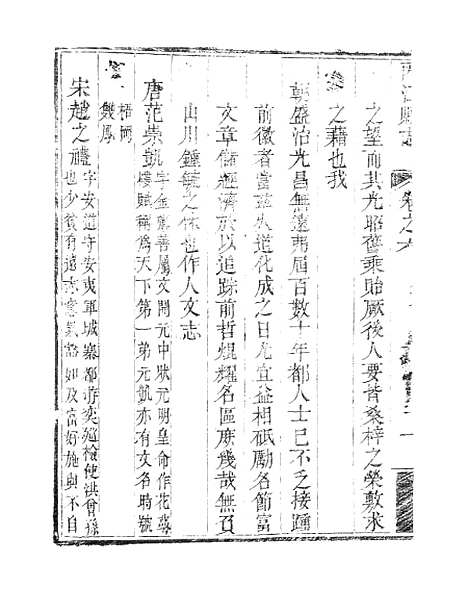 內江縣志 卷之六
之望而其光昭舊乘貽厥後人要皆桑梓之榮敷求
之藉也我
朝盛治光昌無遠弗屆百數十年都人士已不乏接踵
前徽者當玆久道化成之日尤宜益相砥勵名節富
文章儲經濟於以追踪前哲焜耀名區庶幾哉無負
山川鍾毓之休也作人文志
唐范崇凱字金卿善屬文開元中狀元明皇命作花萼
樓賦稱為天下第一弟元凱亦有文名時號
梧岡
雙鳳
宋趙之禮字安道守安夷軍城寨都遊奕巡檢使洪曾孫
也少貧有遠志意氣豁如及富好施與不自